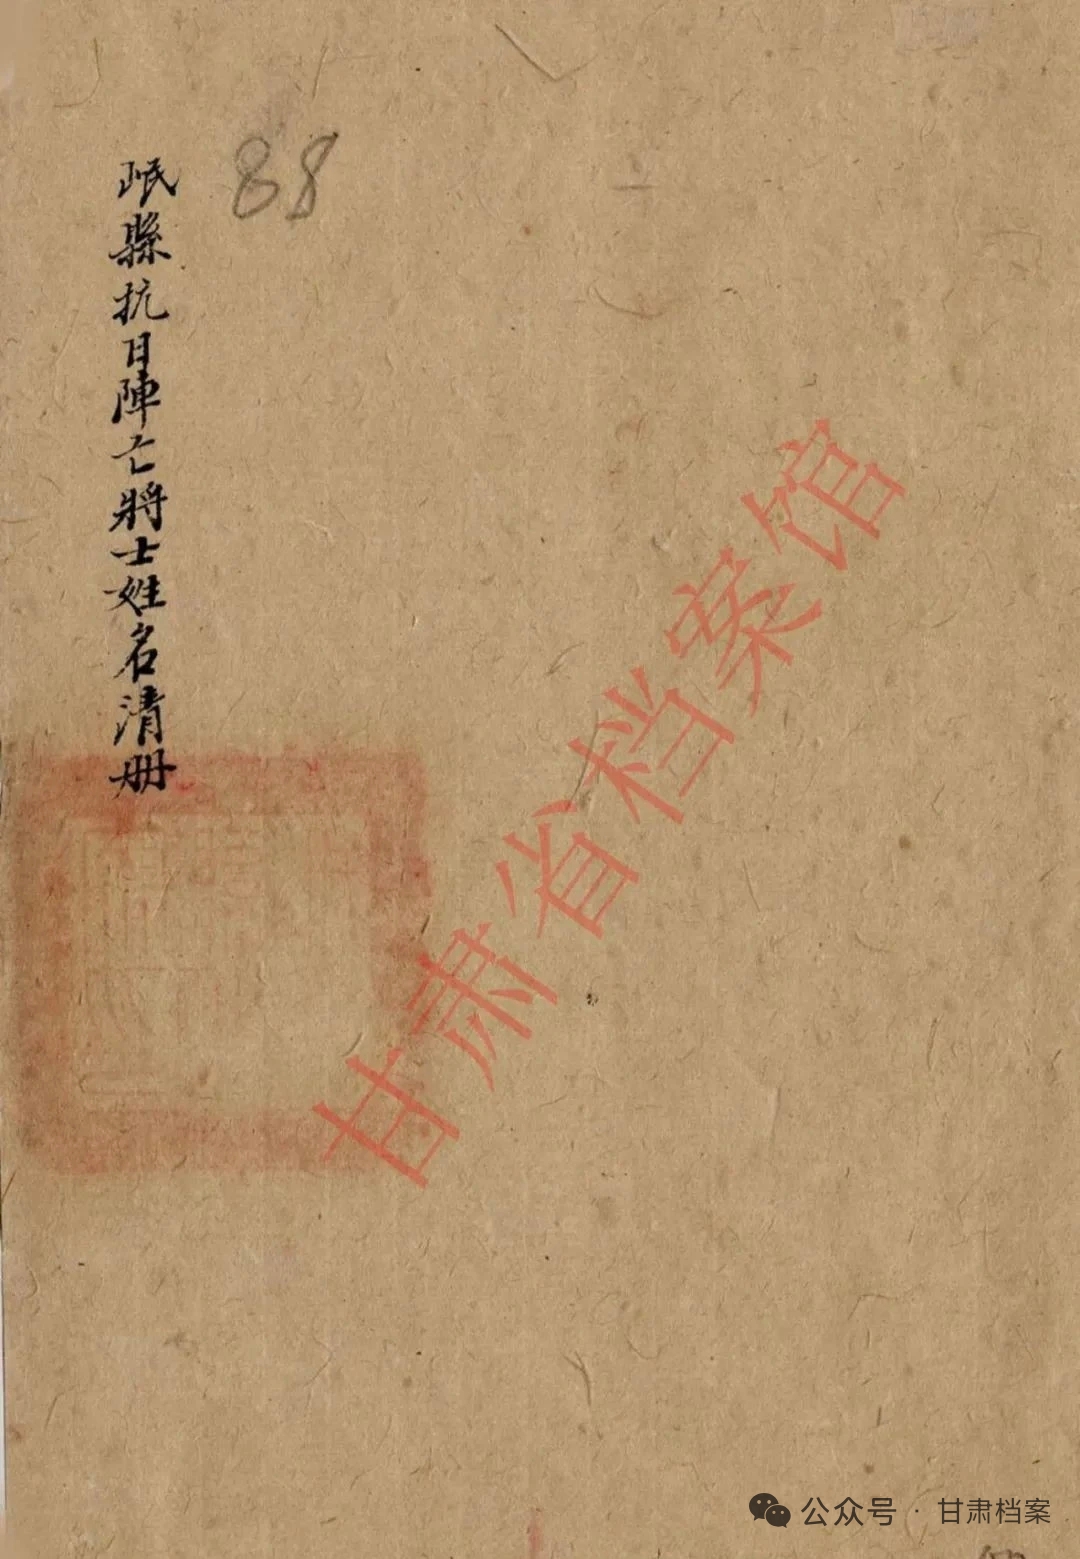 88
岷縣抗日陣亡將士姓名清册
甘肃省档案馆
公众号 · 甘肃档案